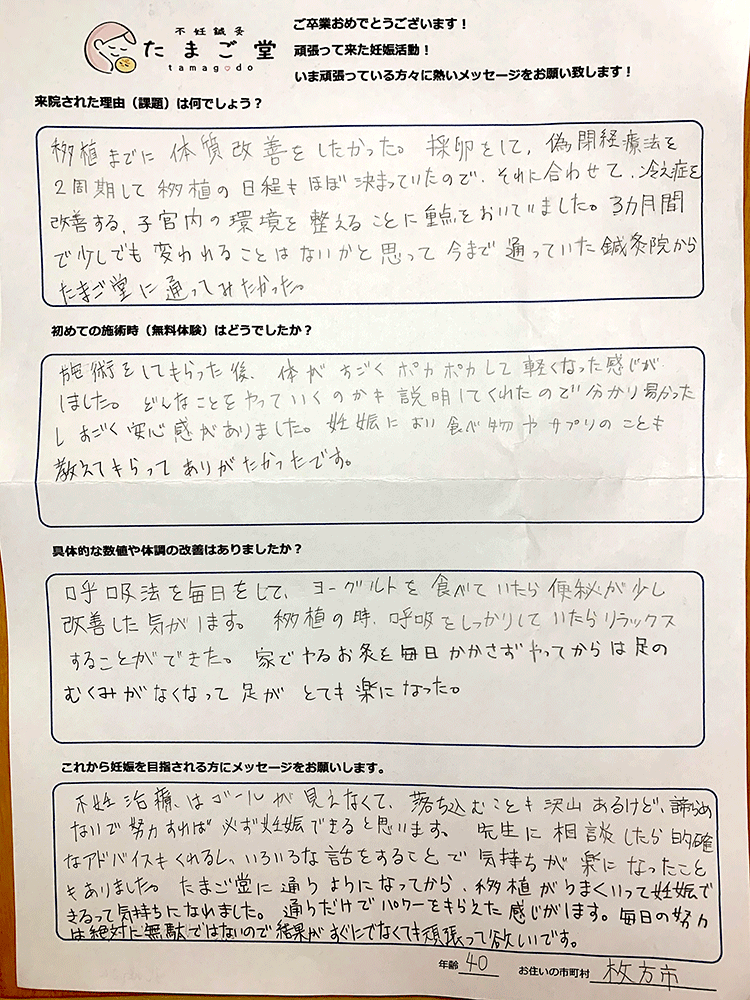 不妊鍼灸
たまご堂
tamagodo
ご卒業おめでとうございます！
頑張って来た妊娠活動！
いま頑張っている方々に熱いメッセージをお願い致します！
来院された理由（課題）は何でしょう？
移植までに体質改善をしたかった。採卵をして、偽閉経療法を
2周期して移植の日程もほぼ決まっていたので、それに合わせて、冷え症を
改善する、子宮内の環境を整えることに重点をおいていました。3カ月間
で少しでも変われることはないかと思って今まで通っていた鍼灸院から
たまご堂に通ってみたかった。
初めての施術時（無料体験）はどうでしたか？
施術をしてもらった後、体がすごくポカポカして軽くなった感じが
しました。どんなことをやっていくのかも説明してくれたので分かり易かった
しすごく安心感がありました。妊娠によい食べ物やサプリのことも
教えてもらってありがたかったです。
具体的な数値や体調の改善はありましたか？
呼吸法を毎日をして、ヨーグルトを食べていたら便秘が少し
改善した気がします。移植の時、呼吸をしっかりしていたらリラックス
することができた。家でやるお灸を毎日かかさずやってからは足の
むくみがなくなって足がとても楽になった。
これから妊娠を目指される方にメッセージをお願いします。
不妊治療はゴールが見えなくて、落ち込むことも沢山あるけど、諦らめ
ないで努力すれば必ず妊娠できると思います。先生に相談したら的確
なアドバイスもくれるし、いろいろな話をすることで気持ちが楽になったこと
もありました。たまご堂に通うようになってから、移植がうまくいって妊娠で
きるって気持ちになれました。通うだけでパワーをもらえた感じがします。毎日の努力
は絶対に無駄ではないので結果がすぐにでなくても頑張って欲しいです。
年齢 40 お住いの市町村 枚方市